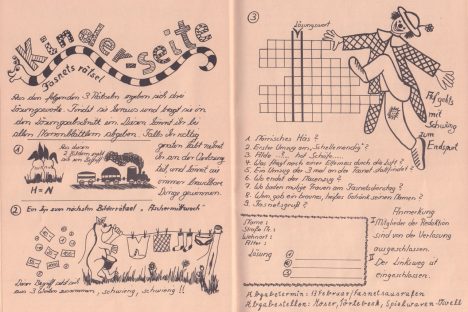 Kinder-seite
Fasnetsrätsel
Aus den folgenden 3 Rätseln ergeben sich die
Lösungsworte. Findet sie heraus und tragt sie in
den Lösungsabschnitt ein. Diesen könnt ihr bei
allen Narrenblättern abgeben. Falls ihr richtig
geraten habt nimmt
ihr an der Verlosung
teil, und könnt wie
immer brauchbare
Dinge gewinnen.
1
Aus diesen
2 Bildern ergibt
sich ein Begriff
H=N
2 Ein Tip zum nächsten Bilderrätsel, "Aschermittwoch"
Dieser Begriff setzt sich
aus 3 Worten zusammen, schwierig, schwierig !!
3
Lösungswort
Auf geht's
mit
Schwung
zum
Endspurt
1. Närrisches Häs?
2. Erster Umzug am "Schellementig"?
3. Alde ... hot Schofe...
4. Was fliegt nach einem Elfmesse durch die Luft?
5. Ein Umzug der 3 mal an der Fasnet stattfindet?
6. Wo endet der Hexenzug?
7. Wo baden mutige Frauen am Fasnetsdienstag?
8. Wem gab ein braves, liebes Gehörn seinen Namen?
9. Fasnetsgruß?
Name :
Straße Nr. :
Wohnort :
Alter :
Lösung
1
2
3
Anmerkung
I Mitglieder der Redaktion
sind von der Verlosung
ausgeschlossen.
II Der Linksweg ist
eingeschlossen.
Abgabetermin: 13. Februar/Fasnetsausrufen
Abgabestellen: Moser, Törkebeck, Spielwaren-Swett